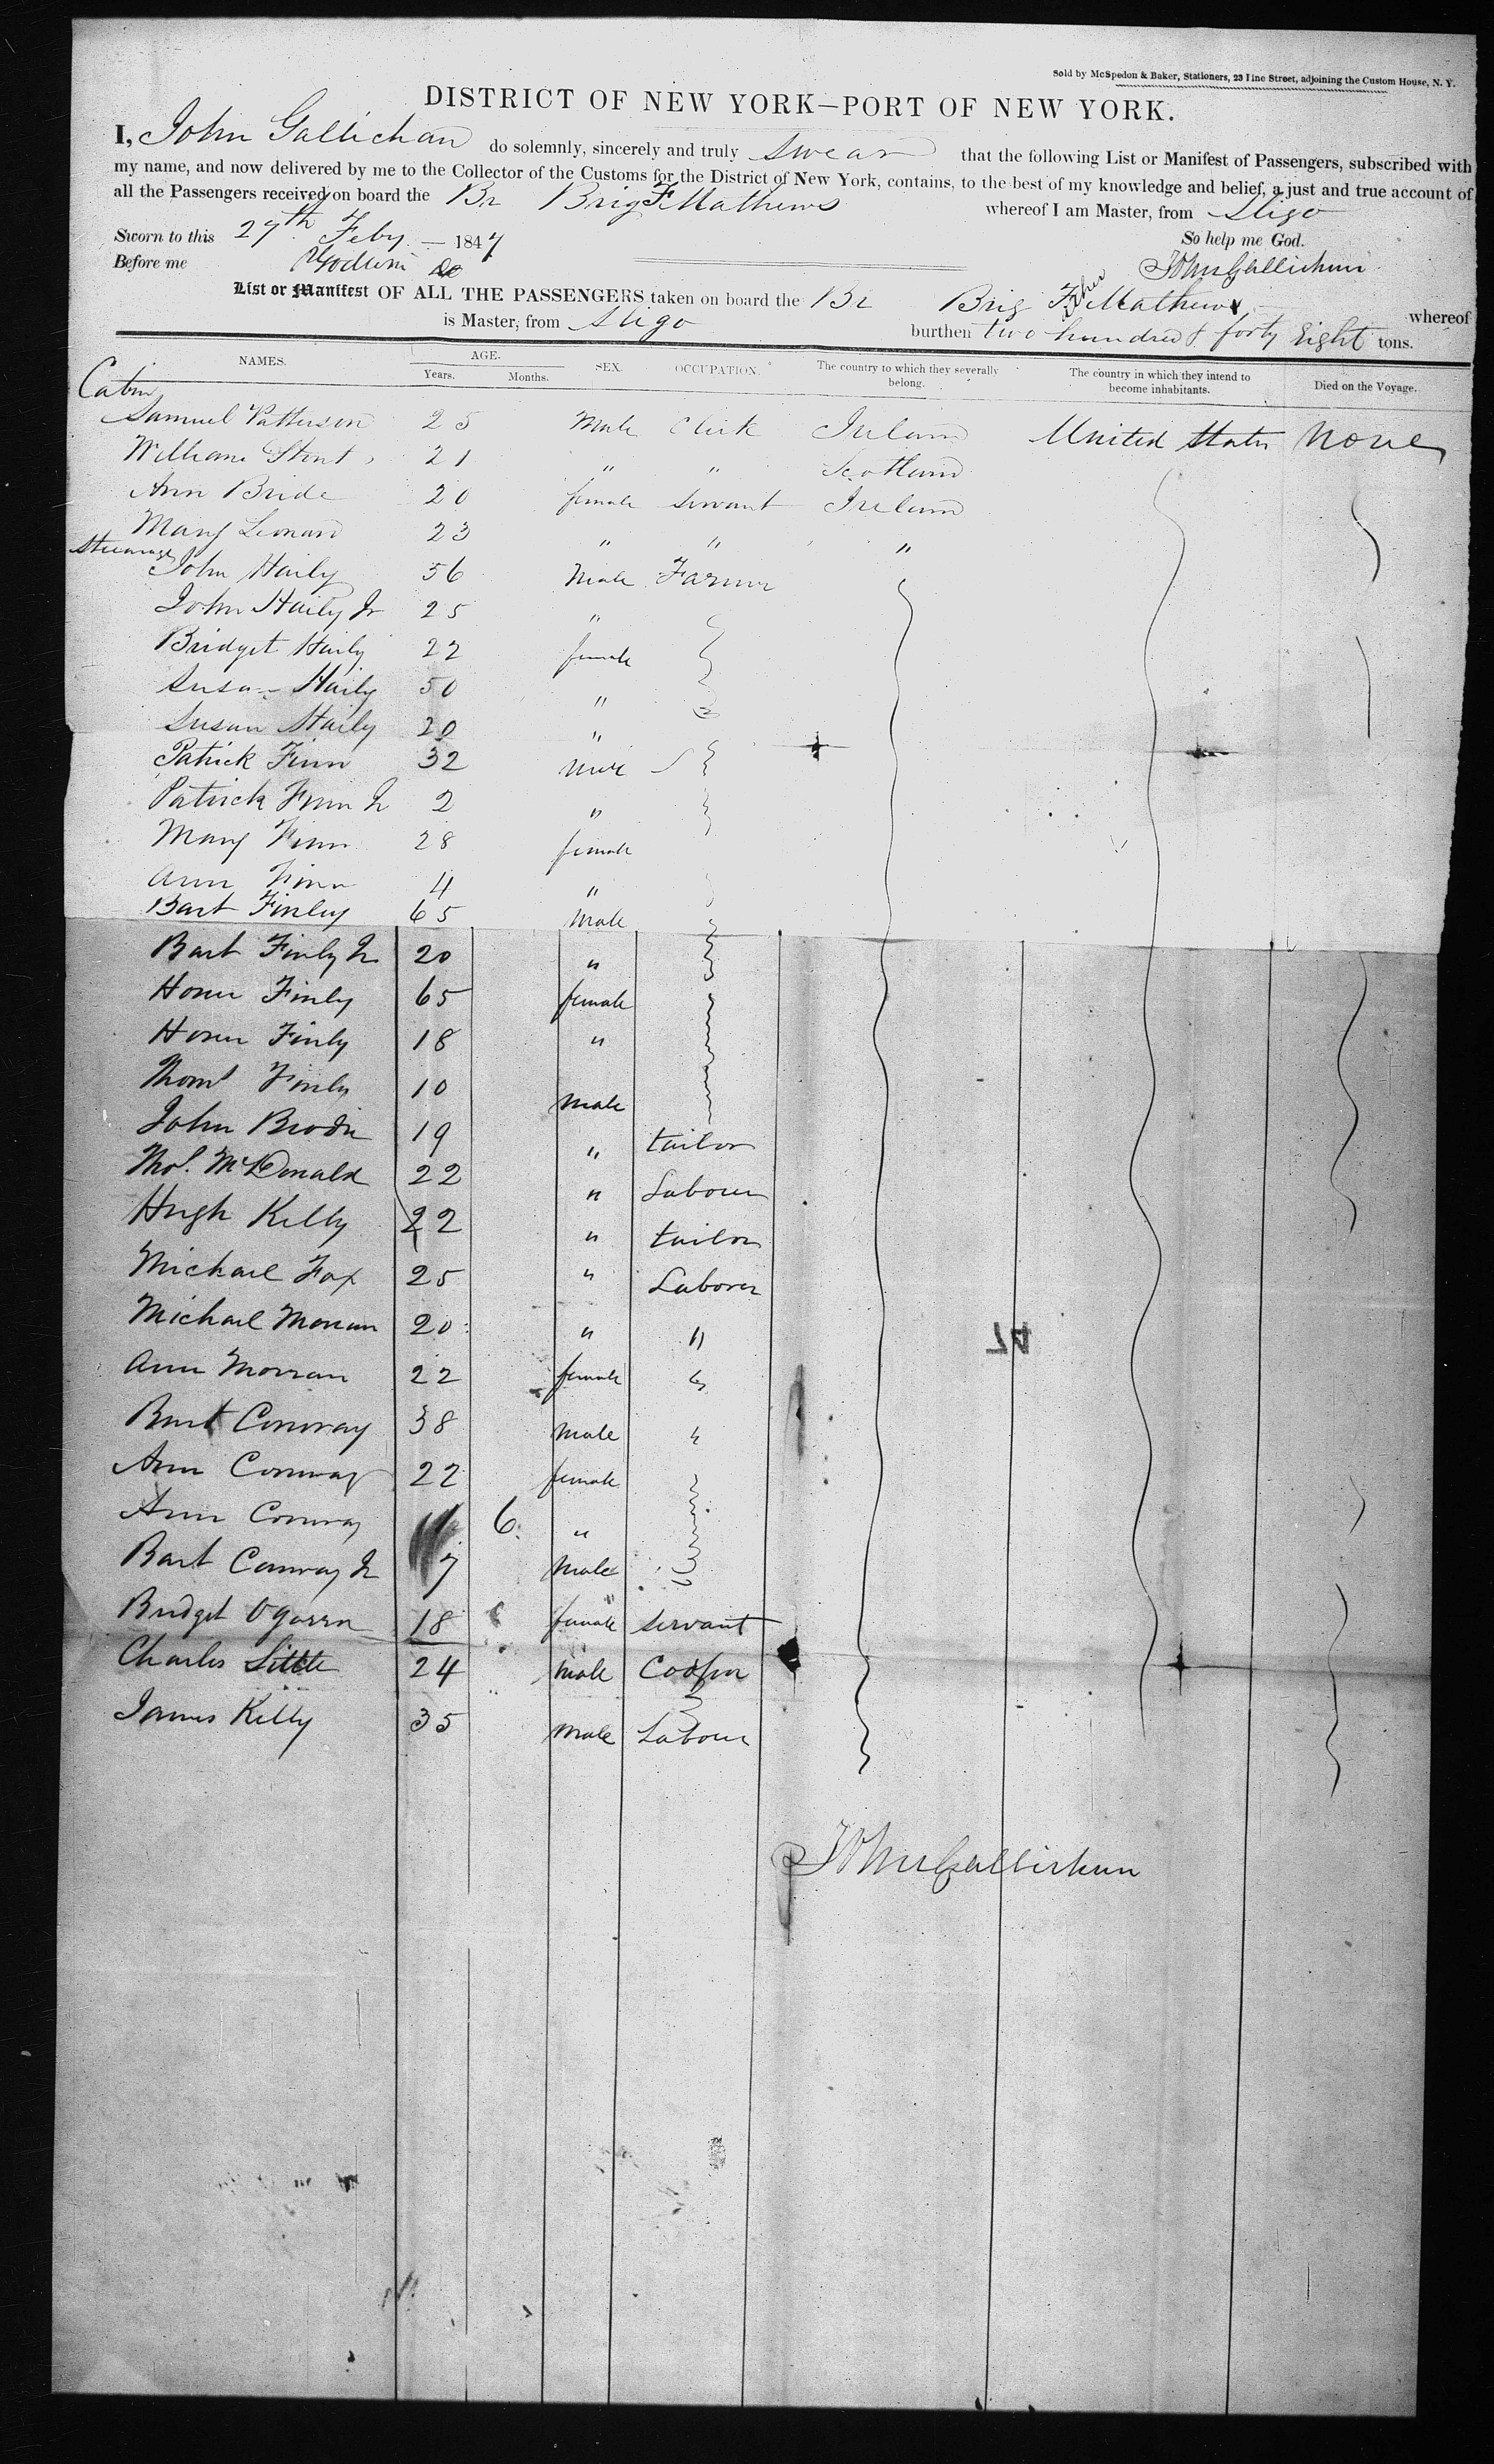 Sold by McSpedon & Baker, Stationers, 23 Pine Street, adjoining the Custom House, N. Y.
DISTRICT OF NEW YORK—PORT OF NEW YORK.
I, John Gallichan do solemnly, sincerely and truly swear that the following List or Manifest of Passengers, subscribed with
my name, and now delivered by me to the Collector of the Customs for the District of New York, contains, to the best of my knowledge and belief, a just and true account of
all the Passengers received on board the Br Brig F. Mathews whereof I am Master, from Sligo
Sworn to this 27th Feby. — 1847 So help me God.
Before me John Gallichan
List or Manifest OF ALL THE PASSENGERS taken on board the Br Brig Father Mathew whereof
is Master, from Sligo burthen two hundred & forty Eight tons.
NAMES. AGE. Years. Months. SEX. OCCUPATION. The country to which they severally belong. The country in which they intend to become inhabitants. Died on the Voyage.
Cabin
Samuel Patterson 25 Male Clerk Ireland United States None
William Stent 21 " " Scotland
Ann Bride 20 female Servant Ireland
Mary Leonard 23 " " "
Steerage
John Haily 56 Male Farmer
John Haily Jr 25 "
Bridget Haily 22 female
Susan Haily 50 "
Susan Haily 20 "
Patrick Finn 32 Male
Patrick Finn Jr 2 "
Mary Finn 28 female
Ann Finn 4 "
Bart Finley 65 Male
Bart Finly Jr 20 "
Honer Finly 65 female
Honer Finly 18 "
Thoms Finly 10 male
John Brodie 19 " tailor
Thos. McDonald 22 " Labourer
Hugh Kelly 22 " tailor
Michael Fox 25 " Laborer
Michael Morran 20 " "
Ann Morran 22 female "
Bart Conway 38 Male "
Ann Conway 22 female
Ann Conway 6 "
Bart Conway Jr 7 Male
Bridget Ogarra 18 female servant
Charles Little 24 male Cooper
James Kelly 35 Male Labour
John Gallichan